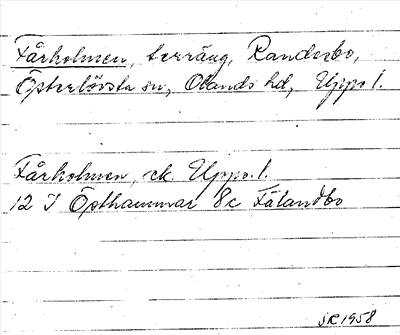 Fårholmen, terräng, Randersbo,
Österlövsta sn, Olands hd, Upps l.
Fårholmen, ek. Upps. l.
12 I Östhammar 8c Fälandbo
SR 1958